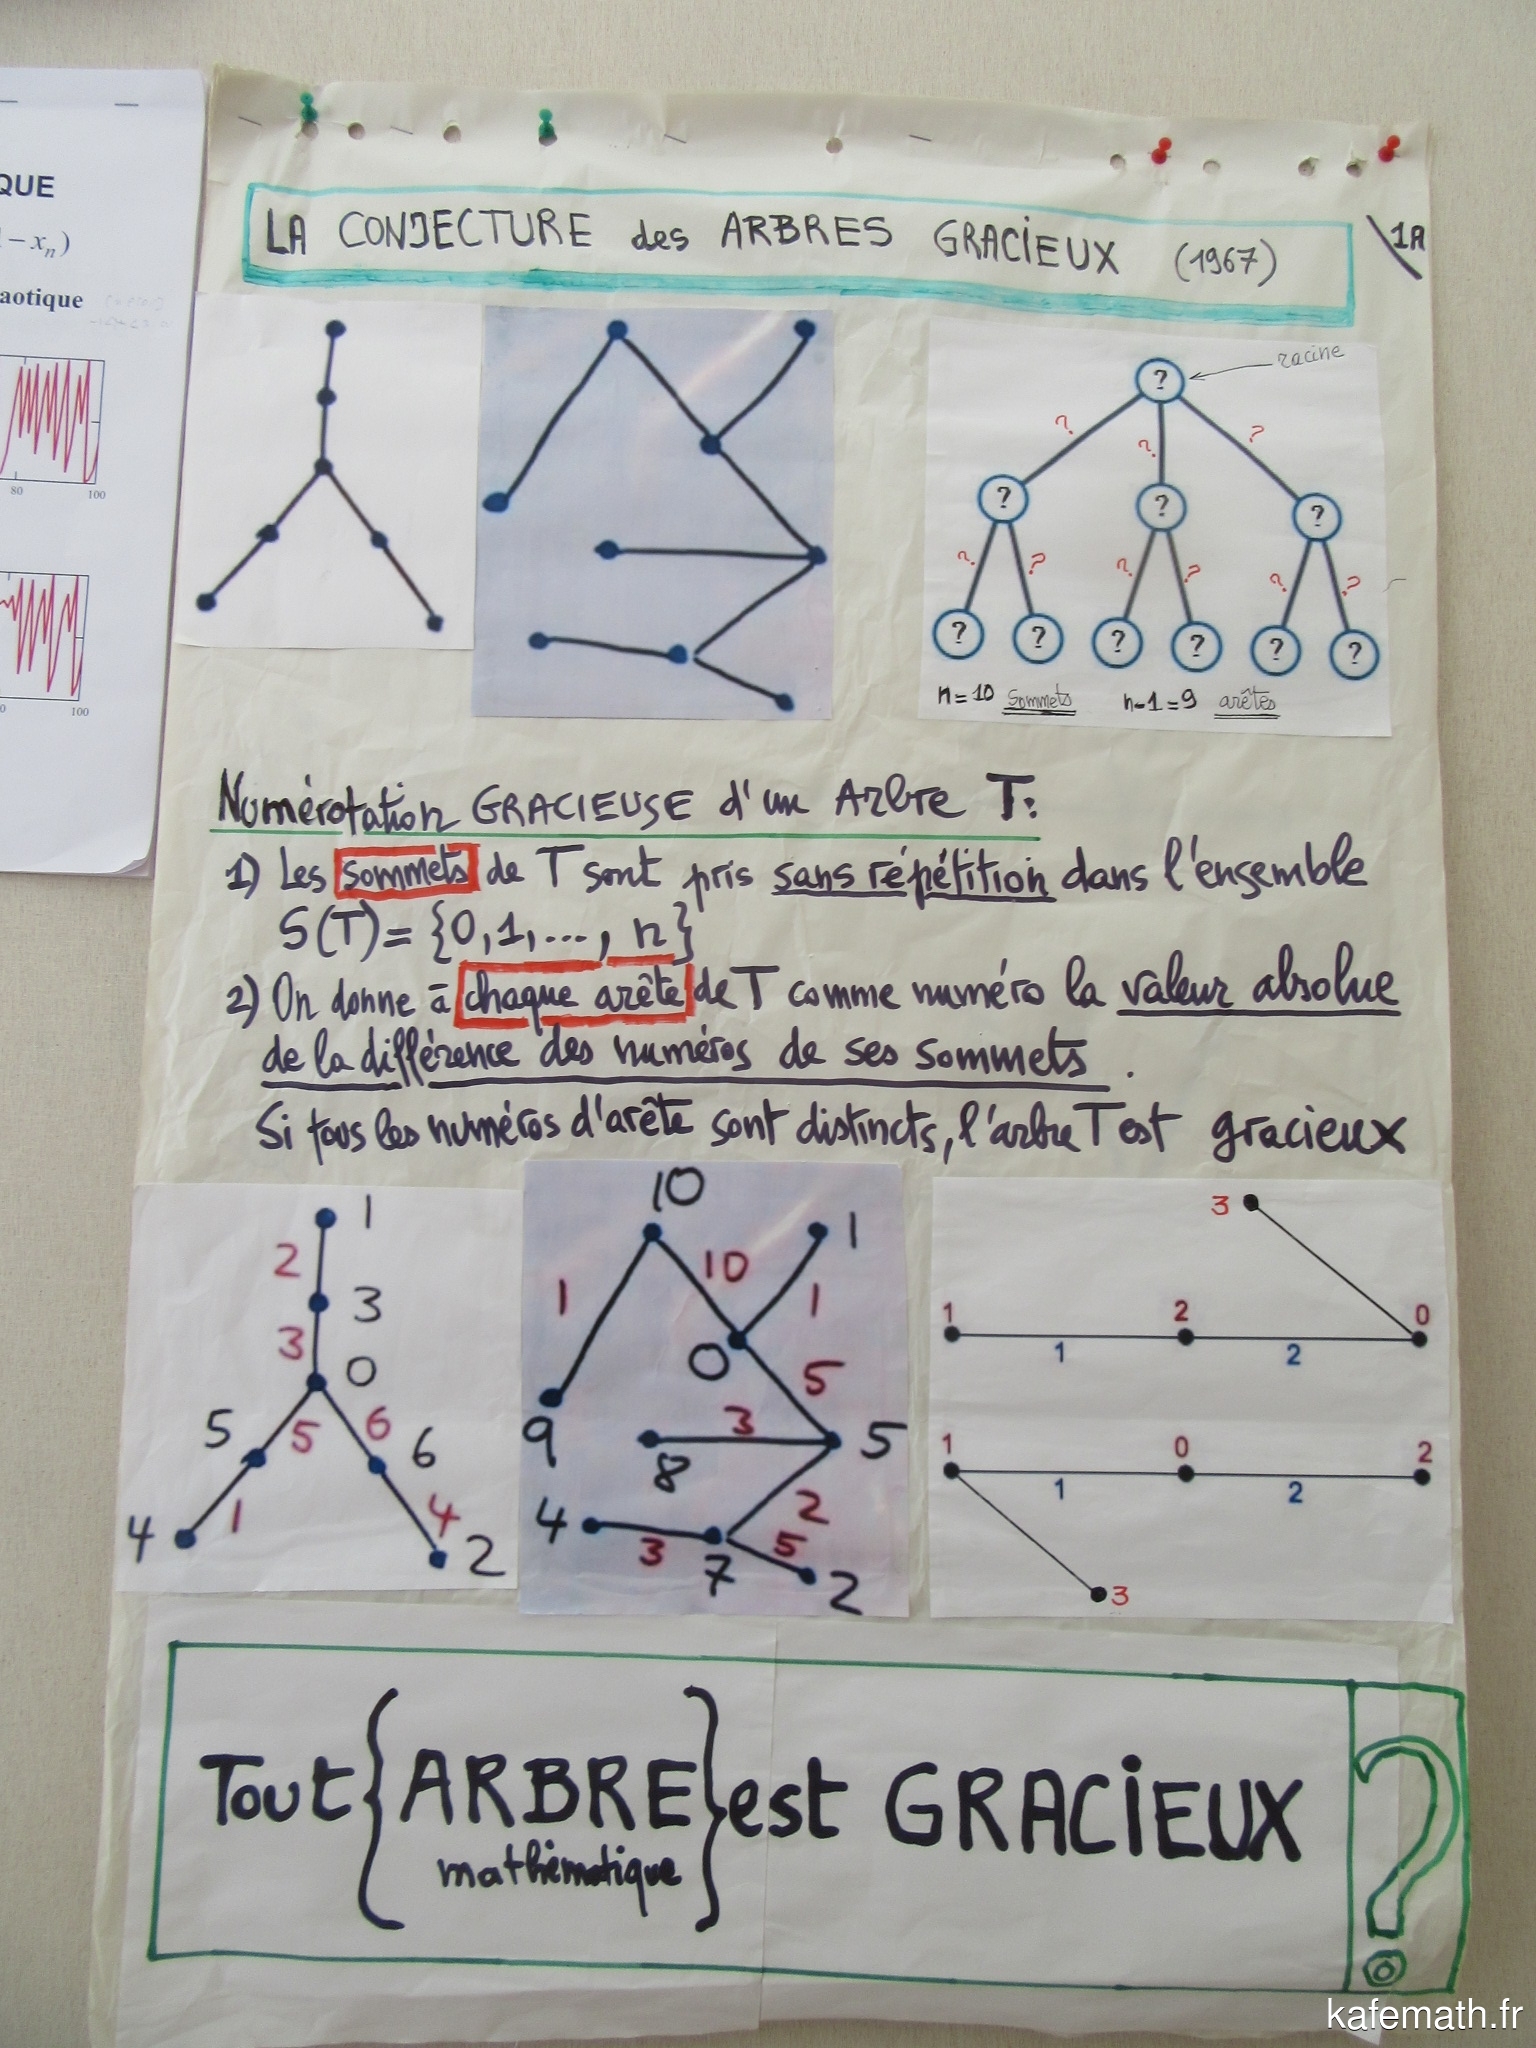 QUE
– xₙ)
aotique
80
100
0
100
LA CONJECTURE des ARBRES GRACIEUX (1967)
1A
racine
?
? ? ?
? ? ?
? ? ? ? ? ?
? ? ? ? ? ?
n=10 sommets n-1=9 arêtes
Numérotation GRACIEUSE d'un Arbre T:
1) Les sommets de T sont pris sans répétition dans l'ensemble
S(T)= {0,1,..., n}
2) On donne à chaque arête de T comme numéro la valeur absolue
de la différence des numéros de ses sommets.
Si tous les numéros d'arête sont distincts, l'arbre T est gracieux
1
2
3
3
0
5 5 6 6
4 1 4 2
10
1 10 1
1
0 5
9 3 5
8
4 2
3 7 5 2
3
1 2 0
1 2
1 0 2
1 2
3
Tout {ARBRE} est GRACIEUX ?
mathématique
kafemath.fr